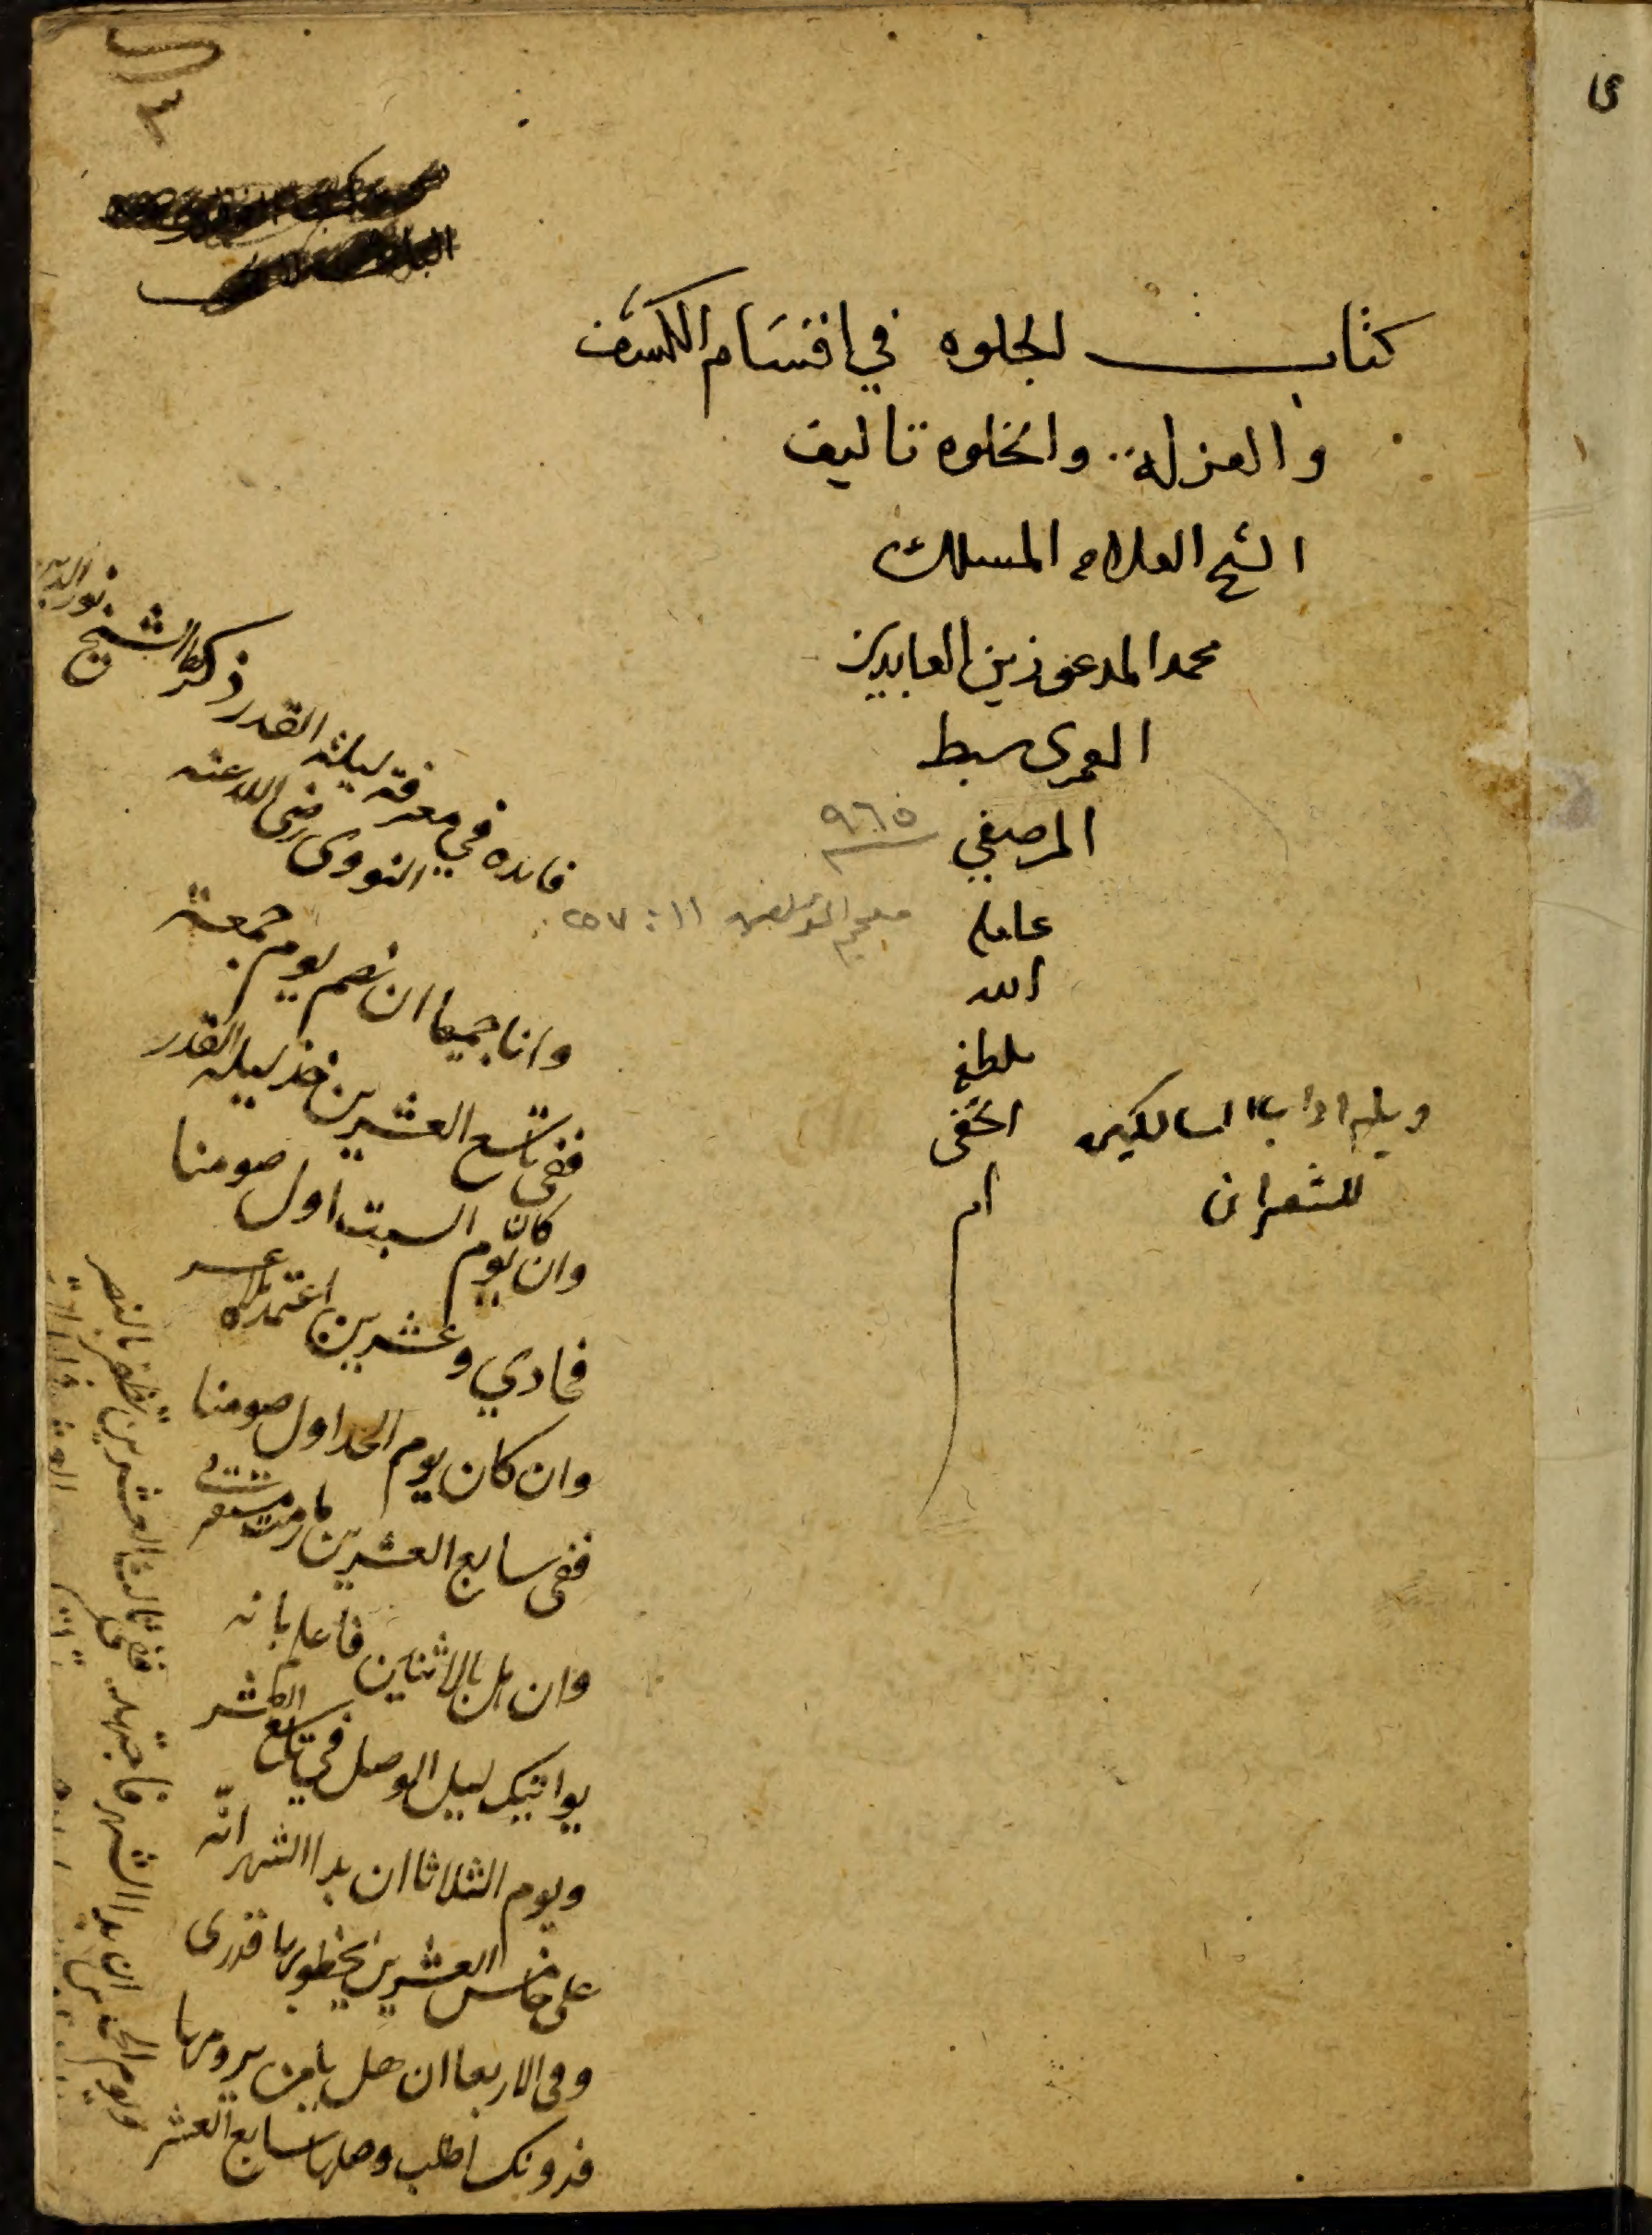 كتاب الجلوه في اقسام الكشف
والعزله والخلوه تاليف
الشيخ العلامه المسلك
محمد المدعو زين العابدين
العمرى سبط
المرصفي
٩٦٥
عامله
معجم المؤلفين ١١ : ٢٥٧
الله
بلطفه
الخفى
ام
ويليه اداب السالكين
للشعرانى
فايده في معرفة ليلة القدر ذكرها الشيخ نور الدين
النووى رضى الله عنه
وانا جميعا ان نصم يوم جمعة
ففى تاسع العشرين خذ ليلة القدر
وان كان يوم السبت اول صومنا
فحادي وعشرين اعتمده بلا عسر
وان كان يوم الحد اول صومنا
ففى سابع العشرين ما رمت
وان هل بالاثنين فاعلم بانه
يواتيك ليل الوصل في تاسع العشر
ويوم الثلاثا ان بدا الشهر انه
على خامس العشرين يحظو بها قدرى
وفى الاربعا ان هل يا من يرومها
فدونك اطلب وصلها سابع العشر
ويوم الخميس ان بدا الشهر فاجتهد
ففى ثالث العشرين تظفر بالنصر